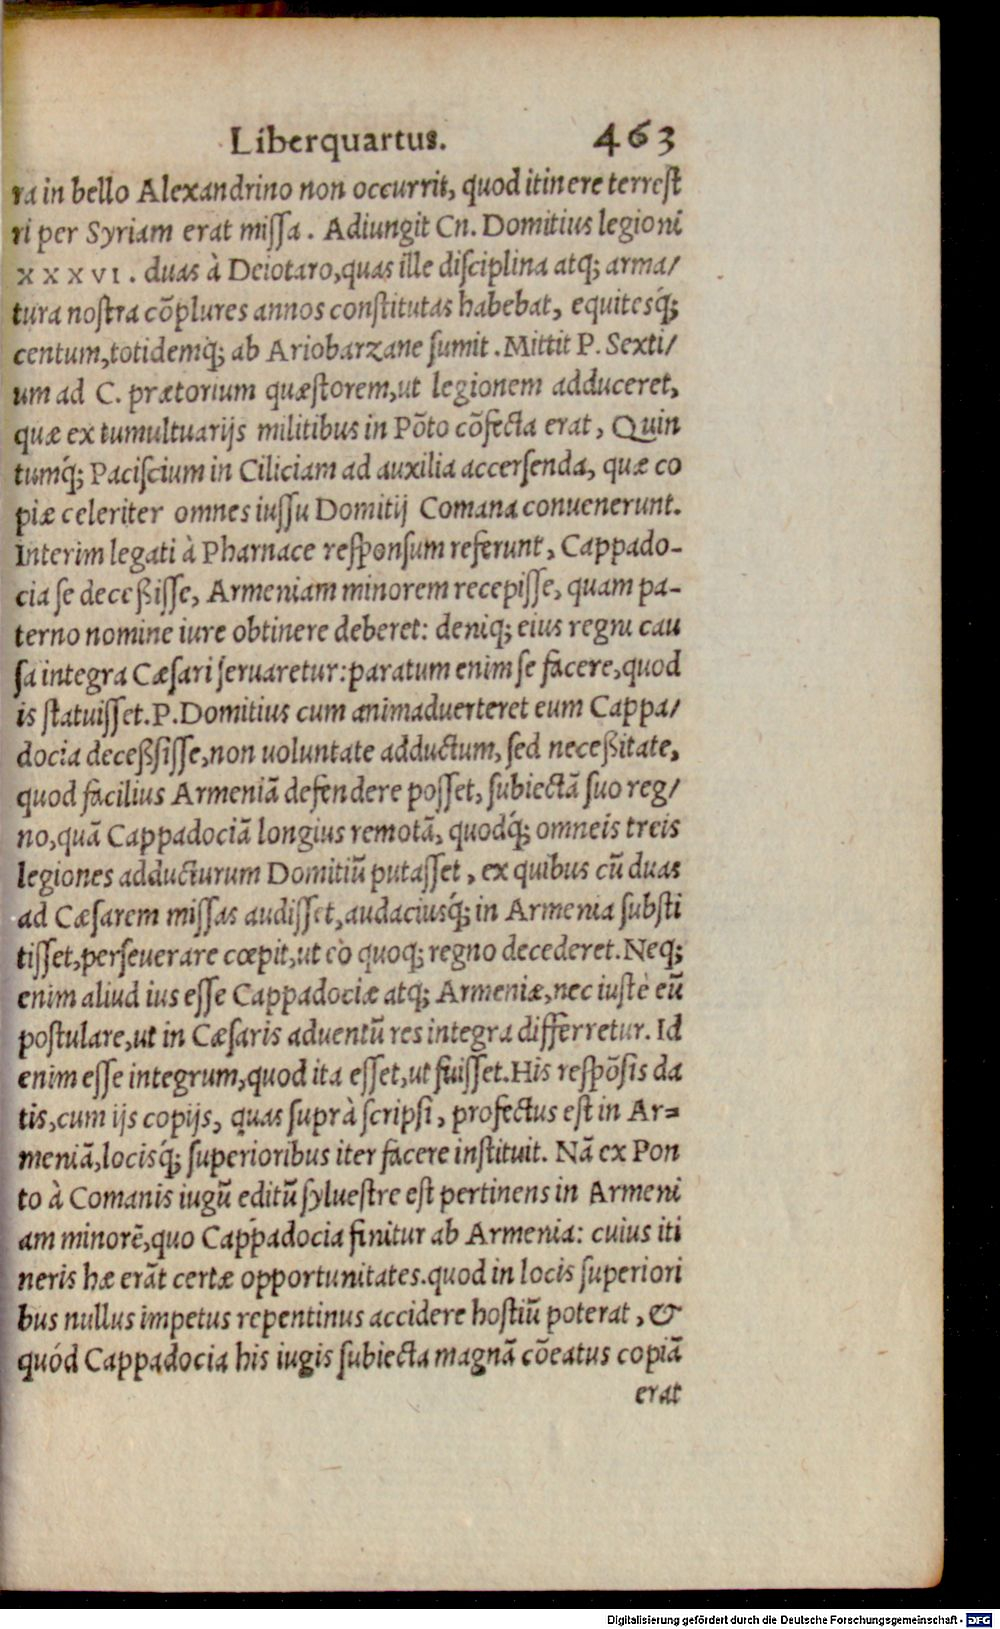 Liber quartus. 463
ra in bello Alexandrino non occurrit, quod itinere terrest
ri per Syriam erat missa. Adiungit Cn. Domitius legioni
XXXVI. duas à Deiotaro, quas ille disciplina atq; arma/
tura nostra cõplures annos constitutas habebat, equitesq́;
centum, totidemq́; ab Ariobarzane sumit. Mittit P. Sexti/
um ad C. prætorium quæstorem, ut legionem adduceret,
quæ ex tumultuarijs militibus in Põto cõfecta erat, Quin
tumq́; Paciscium in Ciliciam ad auxilia accersenda, quæ co
piæ celeriter omnes iussu Domitij Comana conuenerunt.
Interim legati à Pharnace responsum referunt, Cappado-
cia se decessisse, Armeniam minorem recepisse, quam pa-
terno nomine iure obtinere deberet: deniq; eius regni cau
sa integra Cæsari seruaretur: paratum enim se facere, quod
is statuisset. P. Domitius cum animaduerteret eum Cappa/
docia deceßsisse, non uoluntate adductum, sed neceßitate,
quod facilius Armeniã defendere posset, subiectã suo reg/
no, quã Cappadociã longius remotã, quodq́; omneis treis
legiones adducturum Domitiũ putasset, ex quibus cũ duas
ad Cæsarem missas audisset, audaciusq́; in Armenia substi
tisset, perseuerare cœpit, ut eò quoq; regno decederet. Neq;
enim aliud ius esse Cappadociæ atq; Armeniæ, nec iustè eũ
postulare, ut in Cæsaris aduentũ res integra differretur. Id
enim esse integrum, quod ita esset, ut fuisset. His respõsis da
tis, cum ijs copijs, quas suprà scripsi, profectus est in Ar=
meniã, locisq́; superioribus iter facere instituit. Nã ex Pon
to à Comanis iugũ editũ syluestre est pertinens in Armeni
am minorẽ, quo Cappadocia finitur ab Armenia: cuius iti
neris hæ erãt certæ opportunitates. quod in locis superiori
bus nullus impetus repentinus accidere hostiũ poterat, &
quód Cappadocia his iugis subiecta magnã cõeatus copiã
erat
Digitalisierung gefördert durch die Deutsche Forschungsgemeinschaft - DFG